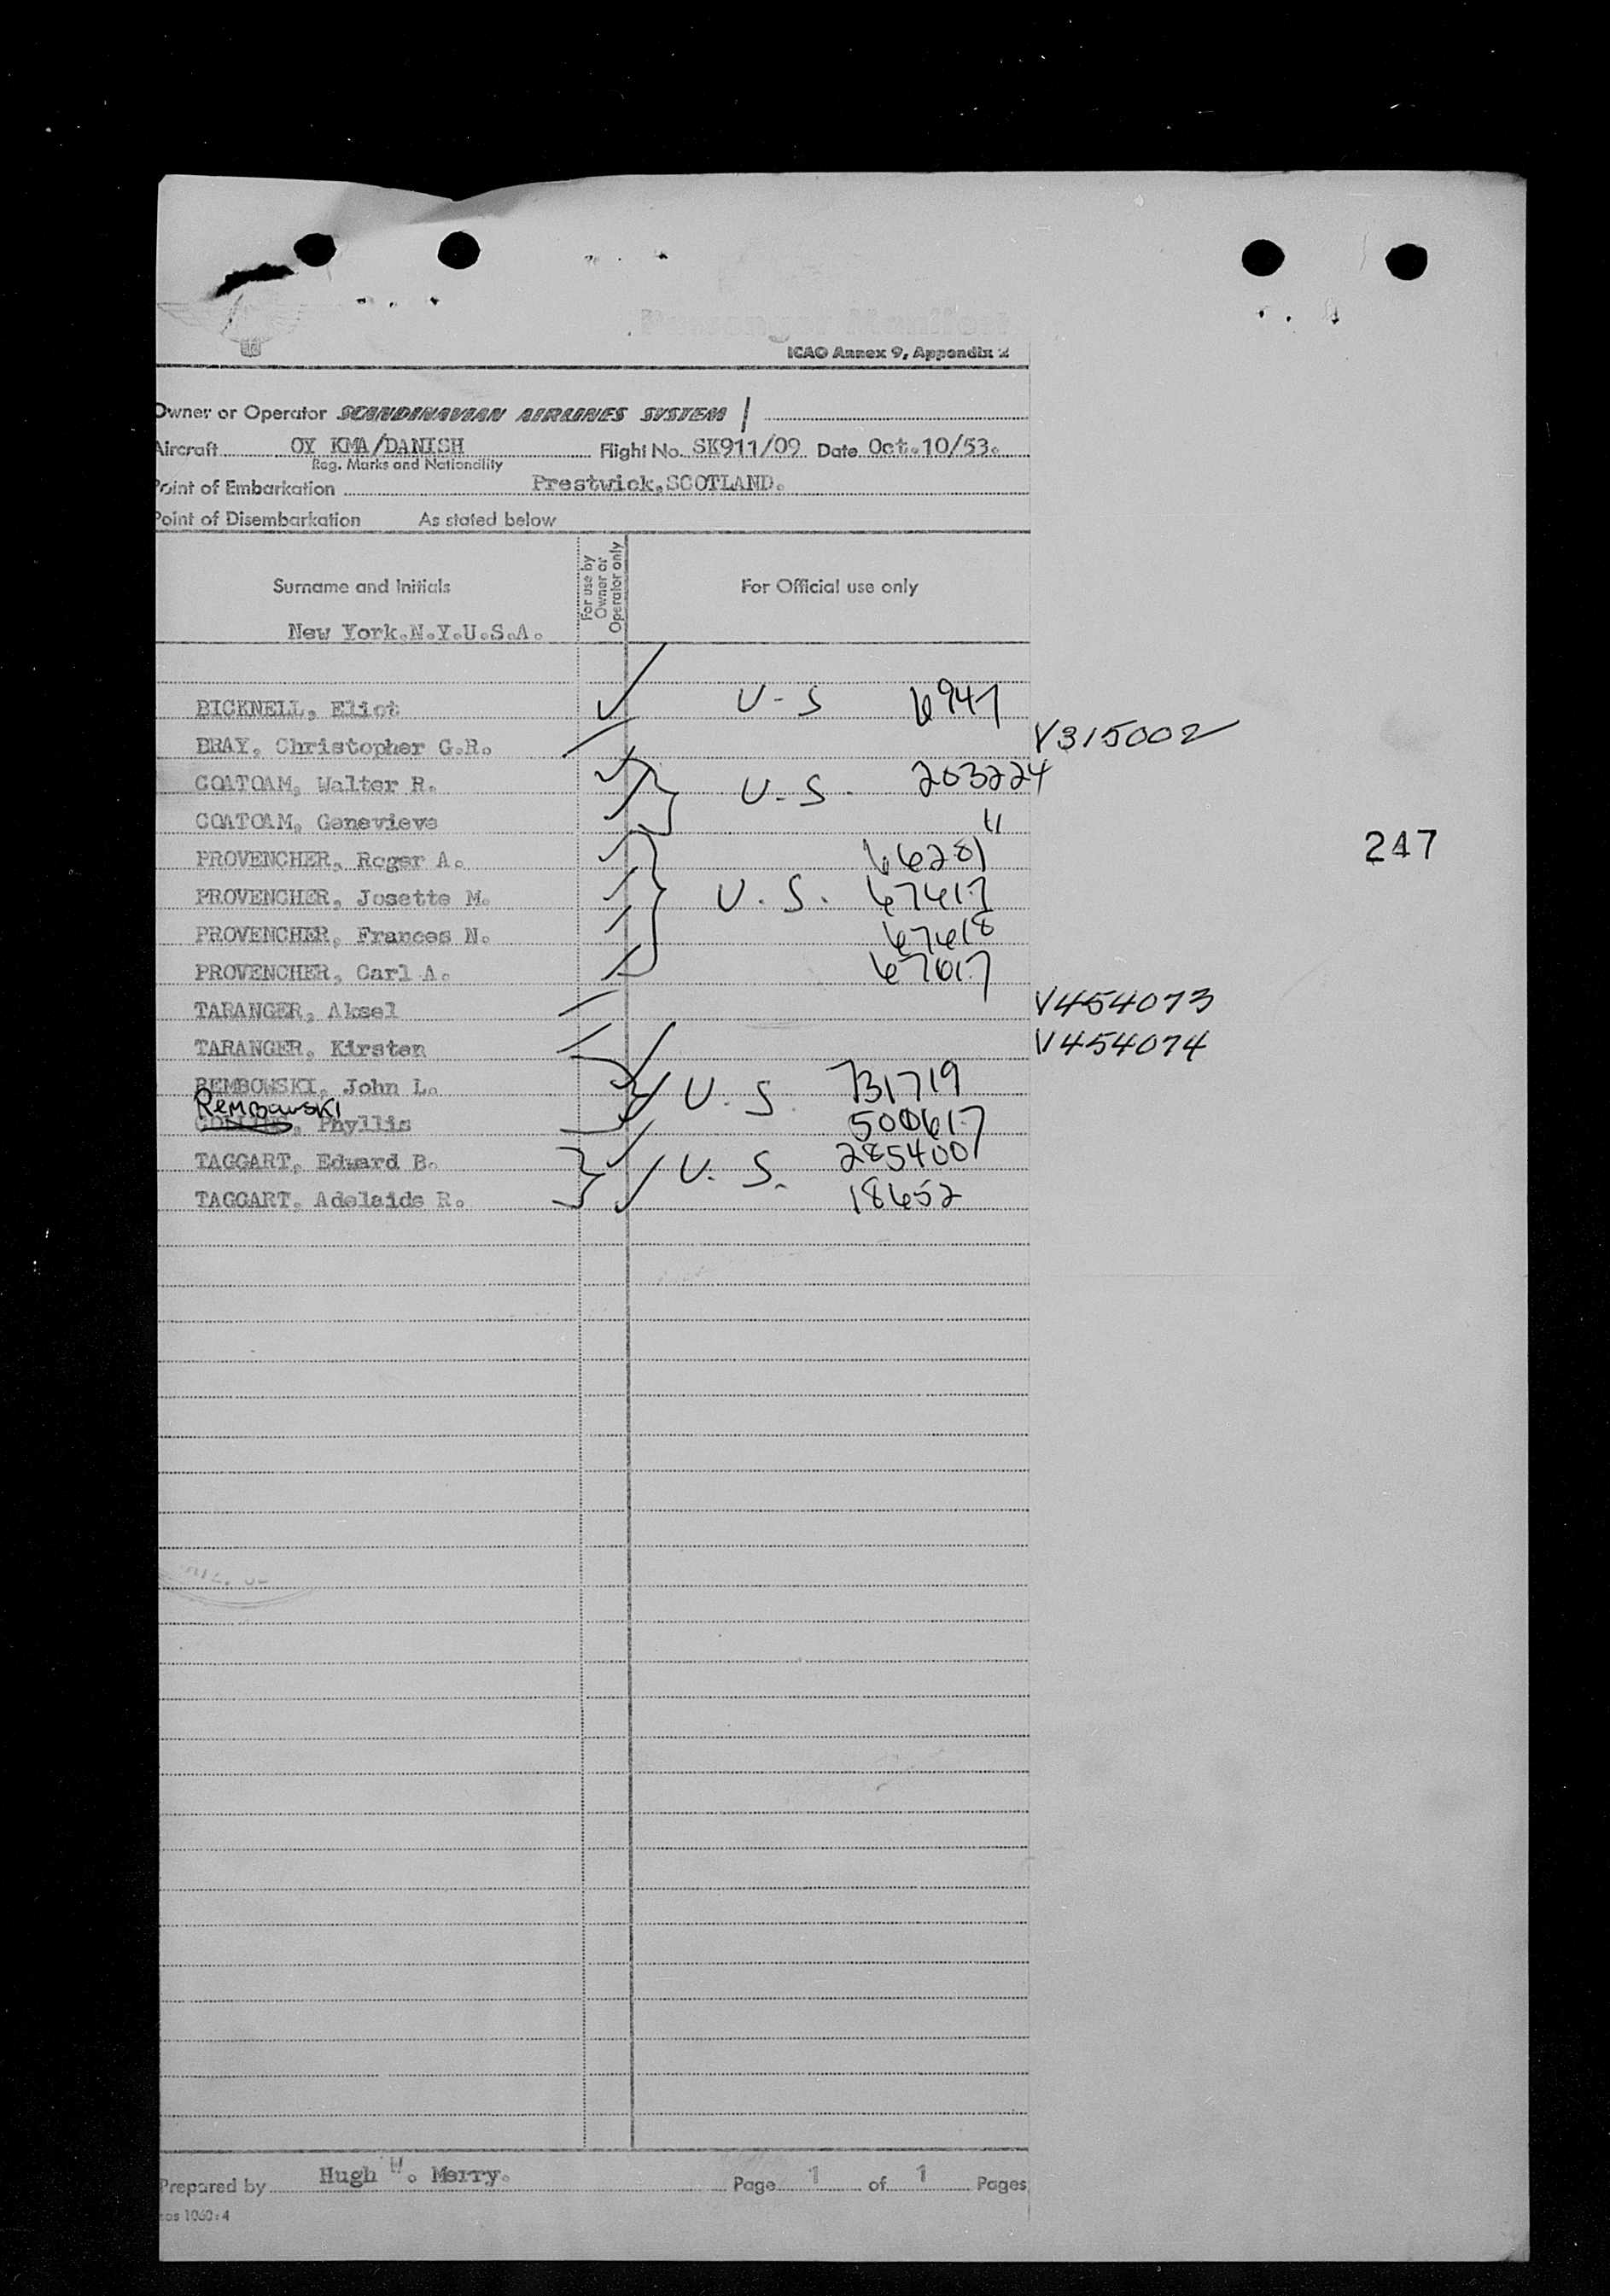 ICAO Annex 9, Appendix 2
Owner or Operator SCANDINAVIAN AIRLINES SYSTEM
Aircraft OY KMA/DANISH Flight No. SK911/09 Date Oct.10/53.
Reg. Marks and Nationality
Point of Embarkation Prestwick,SCOTLAND.
Point of Disembarkation As stated below
Surname and Initials For use by Owner or Operator only For Official use only
New York.N.Y.U.S.A.
BICKNELL, Eliot U-S 6947
BRAY, Christopher G.R. V315002
COATOAM, Walter R. U.S. 203224
COATOAM, Genevieve "
PROVENCHER, Roger A. 66281
PROVENCHER, Josette M. U.S. 67617
PROVENCHER, Frances N. 67618
PROVENCHER, Carl A. 67617
247
TARANGER, Aksel V454073
TARANGER, Kirsten V454074
REMBOWSKI, John L. U.S. 731719
Rembowski
, Phyllis 500617
TAGGART, Edward B. U.S. 285400
TAGGART, Adelaide R. 18652
Prepared by Hugh W. Merry. Page 1 of 1 Pages
sas 1060:4